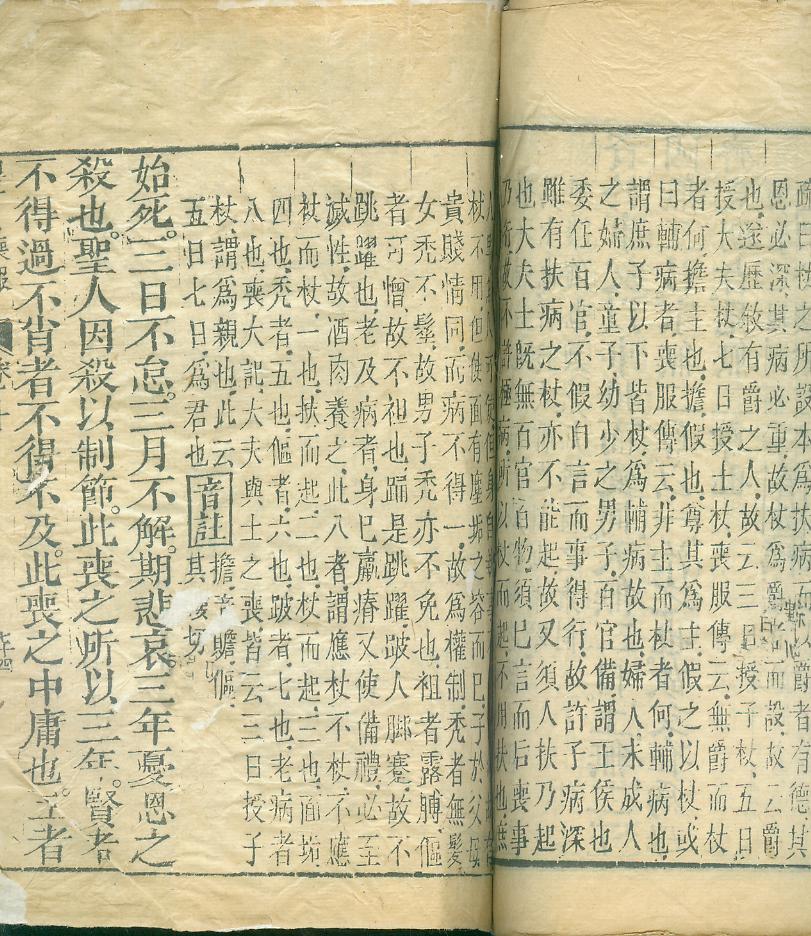 疏曰杖之所設本爲扶病而以爵者有德其
恩必深其病必重故杖爲爵者而設故云爵
也遂歷敘有爵之人故云三日授子杖五日
授大夫杖七日授士杖喪服傳云無爵而杖
者何擔主也擔假也尊其爲主假之以杖或
曰輔病者喪服傳云非主而杖者何輔病也
謂庶子以下皆杖爲輔病故也婦人未成人
之婦人童子幼少之男子百官備謂王侯也
委任百官不假自言而事得行故許子病深
雖有扶病之杖亦不能起故又須人扶乃起
也大夫士既無百官百物須已言而后喪事
乃行故不許極病所以杖而起不用扶也庶
杖不用但使面有塵垢之容而已子於父母
貴賤情同而病不得一故爲權制禿者無髮
女禿不髽故男子禿亦不免也袒者露膊傴
者可憎故不袒也踊是跳躍跛人脚蹇故不
跳躍也老及病者身已羸瘠又使備禮必至
滅性故酒肉養之此八者謂應杖不杖不應
杖而杖一也扶而起二也杖而起三也面垢
四也禿者五也傴者六也跛者七也老病者
八也喪大記大夫與士之喪皆云三日授子
杖謂爲親也此云
五日七日爲君也音註擔章贍傴
其
始死三日不怠三月不解期悲哀三年憂恩之
殺也聖人因殺以制節此喪之所以三年賢者
不得過不肖者不得不及此喪之中庸也王者